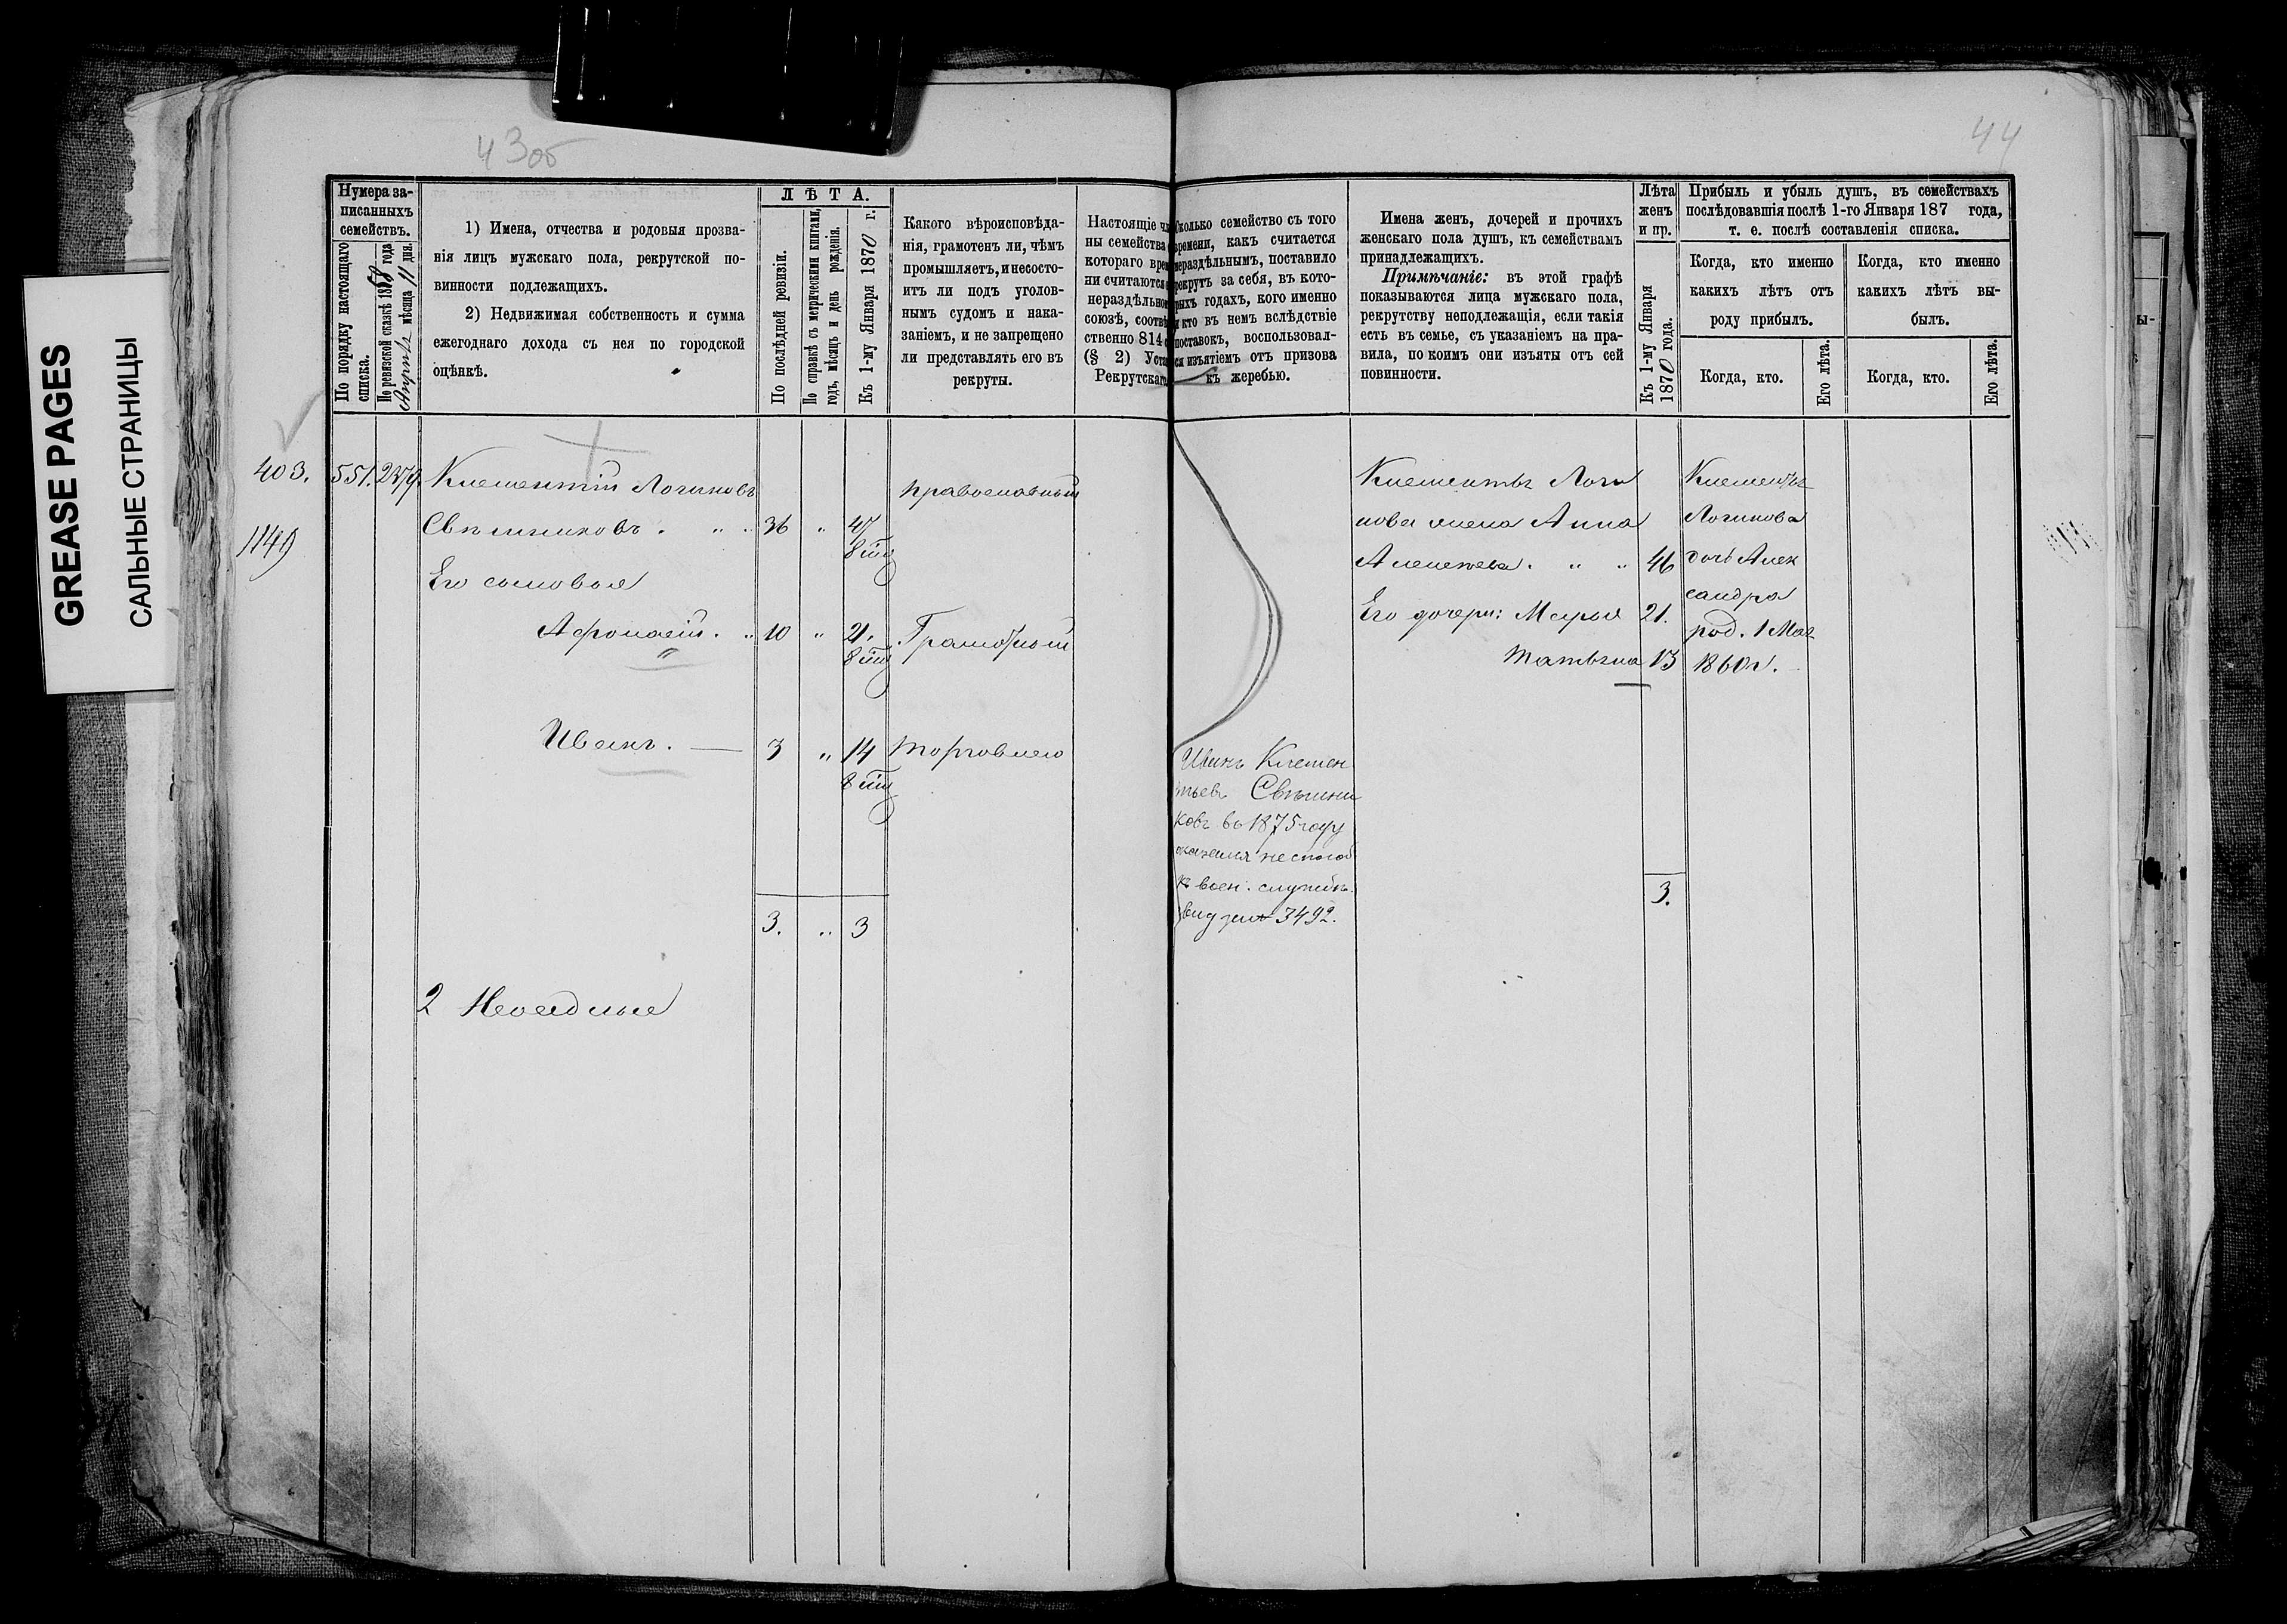 GREASE PAGES
САЛЬНЫЕ СТРАНИЦЫ
43об
Нумера за-
писанныхъ
семействъ.
По порядку настоящаго
списка.
По ревизской сказкѣ 1858 года
мѣсяца 11 дня.
1) Имена, отчества и родовыя прозва-
нія лицъ мужскаго пола, рекрутской по-
винности подлежащихъ.
2) Недвижимая собственность и сумма
ежегоднаго дохода съ нея по городской
оцѣнкѣ.
ЛѢТА.
По послѣдней ревизіи.
По справкѣ съ метрическими книгами,
годъ, мѣсяцъ и день рожденія.
Къ 1-му Января 1870 г.
Какого вѣроисповѣда-
нія, грамотенъ ли, чѣмъ
промышляетъ, и несосто-
итъ ли подъ уголов-
нымъ судомъ и нака-
заніемъ, и не запрещено
ли представлять его въ
рекруты.
Настоящіе чл
ны семейства
котораго врем
ни считаются
нераздѣльном
союзѣ, соотвѣ
ственно 814
(§ 2) Устав
Рекрутскаго
403.
551.
1149
Клементій Логиновъ
Свѣшниковъ . " .
36 " 47
Его сыновья
Афонасій . " 10 " 21.
Иванъ. — 3 " 14
православный
Грамотный
торговлею
3. " 3
2
44
сколько семейство съ того
времени, какъ считается
нераздѣльнымъ, поставило
рекрутъ за себя, въ кото-
рыхъ годахъ, кого именно
и кто въ немъ вслѣдствіе
поставокъ, воспользовал-
ся изъятіемъ отъ призова
къ жеребью.
Имена женъ, дочерей и прочихъ
женскаго пола душъ, къ семействамъ
принадлежащихъ.
Примѣчаніе: въ этой графѣ
показываются лица мужскаго пола,
рекрутству неподлежащія, если такія
есть въ семьѣ, съ указаніемъ на пра-
вила, по коимъ они изъяты отъ сей
повинности.
Лѣта
женъ
и пр.
Къ 1-му Января
1870 года.
Прибыль и убыль душъ, въ семействахъ
послѣдовавшія послѣ 1-го Января 187 года,
т. е. послѣ составленія списка.
Когда, кто именно
какихъ лѣтъ отъ
роду прибылъ.
Когда, кто именно
какихъ лѣтъ вы-
былъ.
Когда, кто.
Его лѣта.
Когда, кто.
Его лѣта.
Иванъ Клемен
тьевъ Свѣшни
ковъ въ 1875 году
к воен. службѣ.
3492.
Клементья Логи
нова жена Анна
46
Его дочери: Марья 21.
Татьяна 13
3.
Клементья
Логинова
дочь Алек
сандра
род. 1 Мая
1860 г.